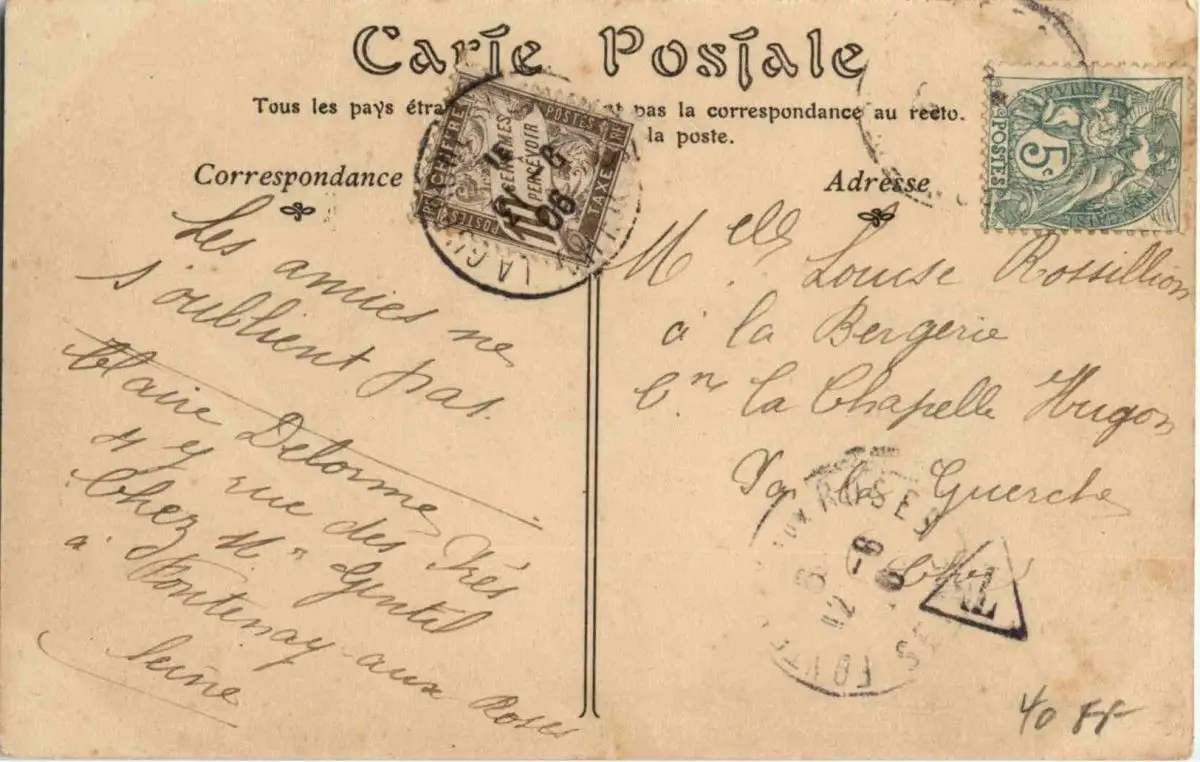 Carte Postale
Tous les pays étra pas la correspondance au recto.
la poste.
Correspondance
Adresse
A CHIFFRE
10 CENTIMES
A
PERCEVOIR
POSTES RF
TAXE
POSTES
LA GU
8
08
5c
POSTES
Les amies ne
s'oublient pas.
Claire Delorme
rue des
Chez M. Gentil
à Fontenay aux Roses
Seine
Melle Louise Rossillion
à la Bergerie
Cne La Chapelle Hugon
Par la Guerche
Cher
AUX ROSES
FONT
SE
40 FF